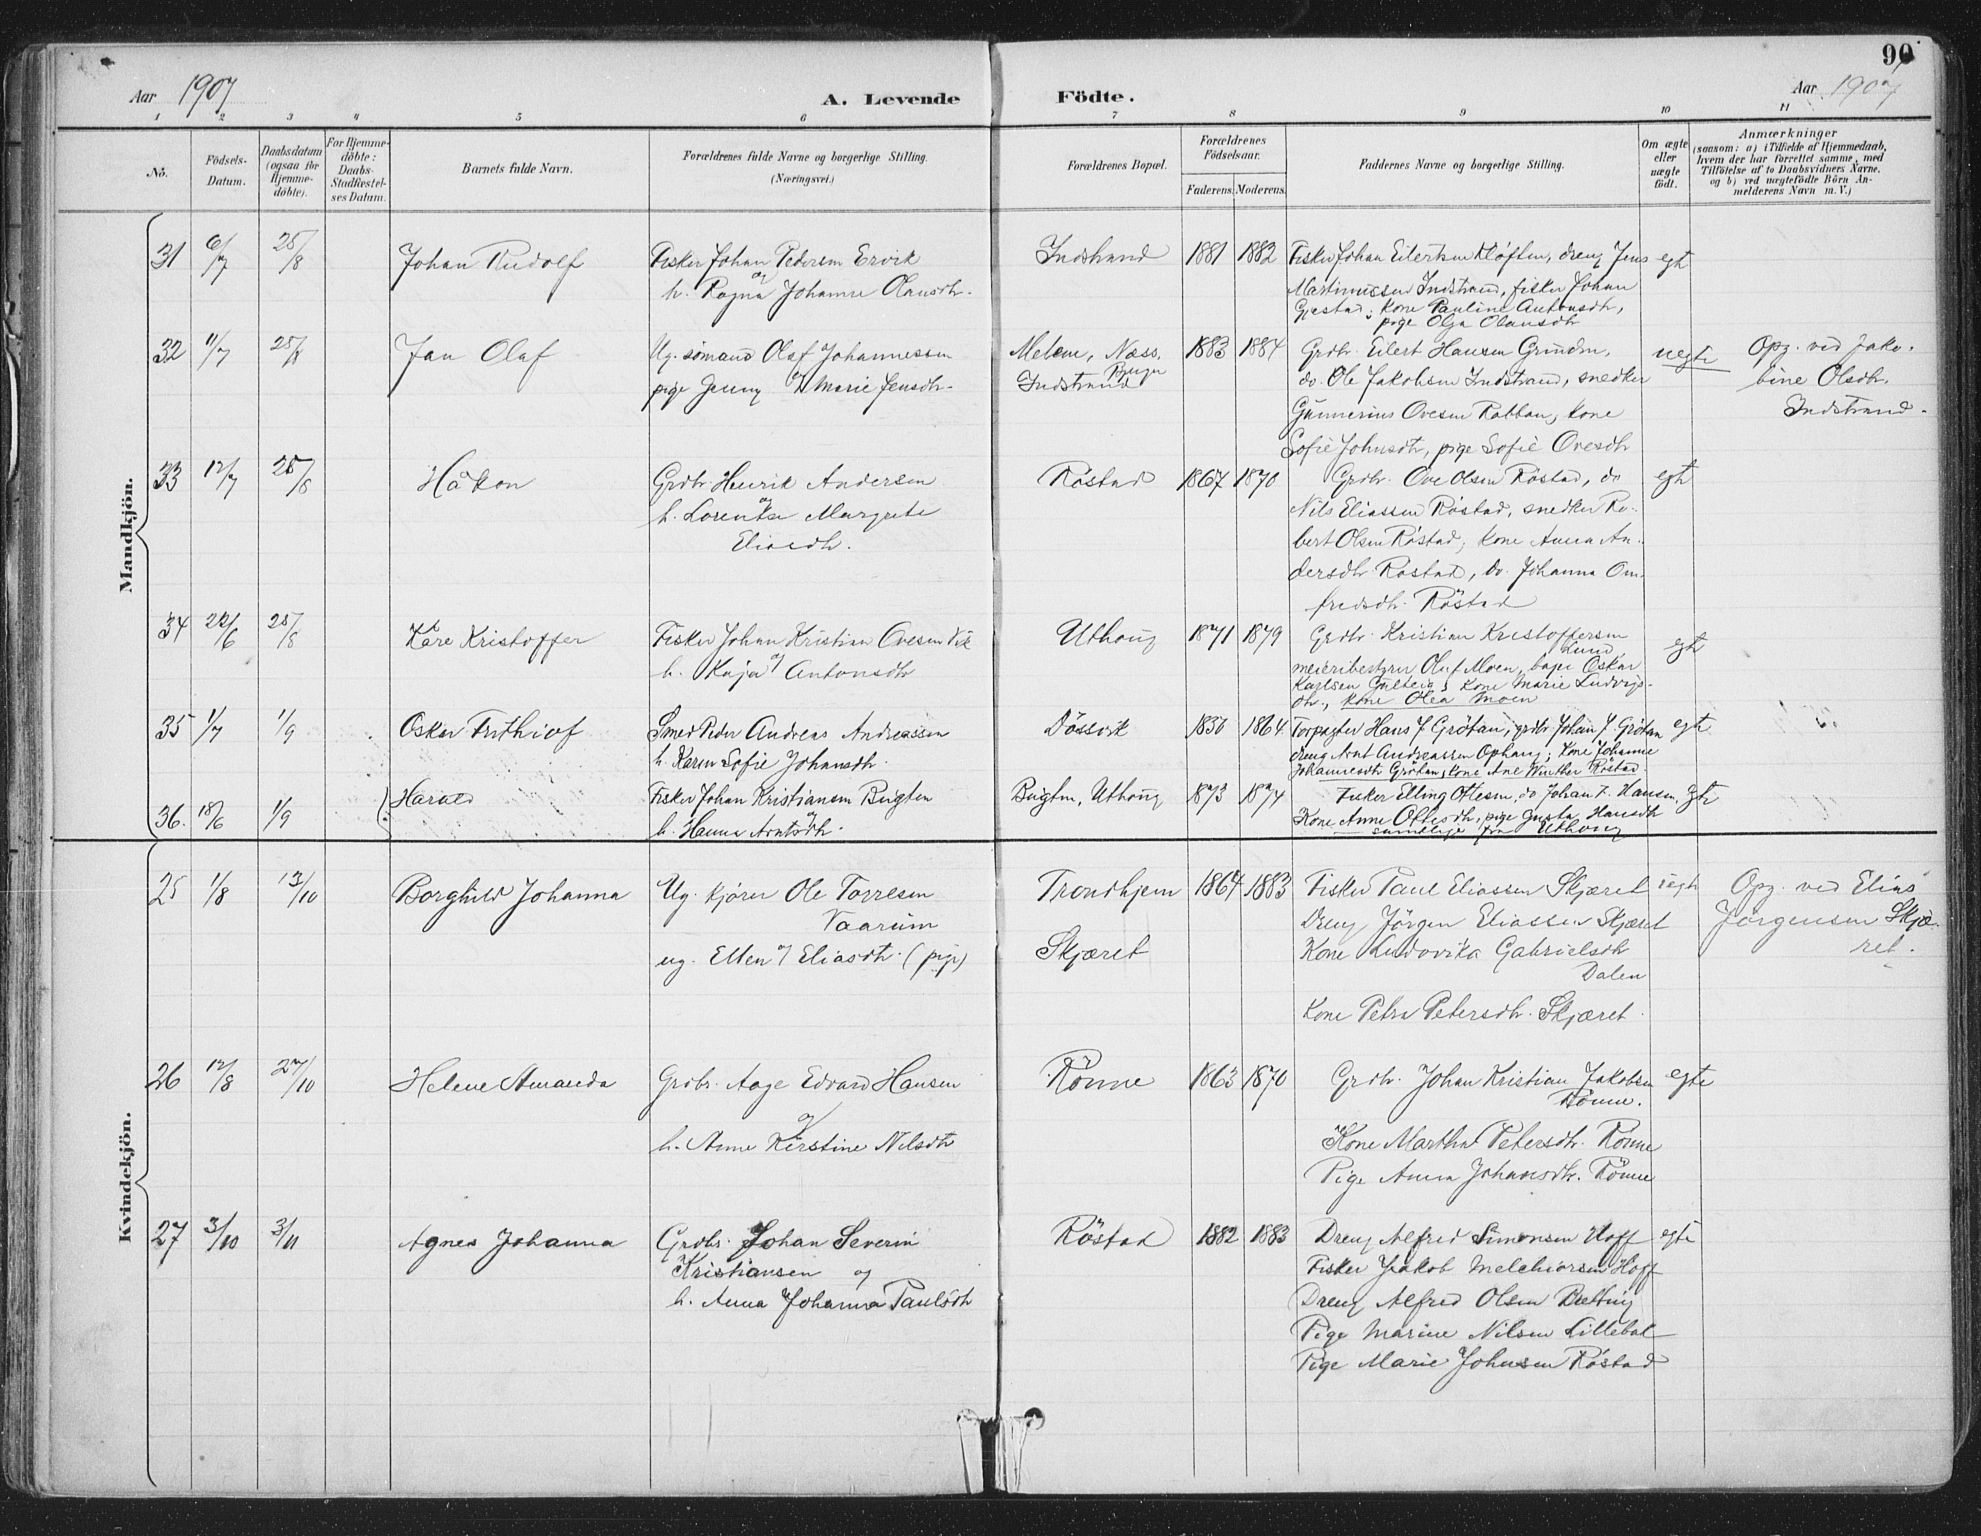 90
Aar 1907
A. Levende Födte.
Aar 1907
1 2 3 4 5 6 7 8 9 10 11
No.
Födsels-Datum.
Daabsdatum (ogsaa for Hjemme-döbte).
For Hjemme-döbte: Daabs-Stadfæstel-ses Datum.
Barnets fulde Navn.
Forældrenes fulde Navne og borgerlige Stilling.
(Næringsvei.)
Forældrenes Bopæl.
Forældrenes Födselsaar.
Faderens. Moderens.
Faddernes Navne og borgerlige Stilling.
Om ægte eller uægte födt.
Anmærkninger
(saasom: a) i Tilfælde af Hjemmedaab,
hvem der har forrettet samme, med
Tilföielse af to Daabsvidners Navne,
og b) ved uægtefödte Börn An-
melderens Navn m. V.)
Mandkjön.
31 6/7 25/8 Johan Rudolf Fisker Johan Pedersen Ervik Indstrand 1881 1882 Fisker Johan Eilertsen Kløften, dreng Jens egte
og
h. Ragna Johanne Olausdtr. Martinussen Indstrand, fisker Johan
Gjestad, kone Pauline Antonsdtr,
pige Olga Olausdtr
32 11/7 25/8 Jan Olaf Ug. sömand Olaf Johannessen Melem, Næss, 1883 1884 Grdbr. Eilert Hansen Grunden, uegte Opg. ved Jako-
pige Jenny og Marie Jensdtr. Indstrand do. Ole Jakobsen Indstrand, snedker bine Olsdtr.
Gunnerius Ovesen Rabban, kone Indstrand.
Sofie Johnsdtr, pige Sofie Ovesdtr
33 12/7 25/8 Håkon Grdbr. Henrik Andersen Röstad 1867 1870 Grdbr. Ove Olsen Röstad, do egte
og
h. Lorentse Margrete Nils Eliassen Röstad, snedker Ro-
Eliasdtr. bert Olsen Röstad, kone Anna An-
dersdtr. Röstad, do. Johanna Om-
fredsdtr. Röstad
34 22/6 25/8 Kåre Kristoffer Fisker Johan Kristian Ovesen Vik Uthaug 1871 1879 Grdbr. Kristian Kristoffersen egte
Lund,
h. Kaja og Antonsdtr meieribestyrer Oluf Moen, bager Oskar
Karlsen Galteig, kone Marie Ludvigs-
dtr, kone Olea Moen
35 1/7 1/9 Oskar Frithiof Smed Peder Andreas Andreassen Dössvik 1850 1864 Forpagter Hans J Grötan, grdbr Johan J. Grötan egte
h. Karen Sofie Johansdtr. dreng Arnt Andreassen Ophaug, kone Johanne
Johannesdtr Grötan, kone Ane Winther Röstad
36. 18/6 1/9 Harald Fisker Johan Kristiansen Bugten Bugten, Uthaug 1873 1874 Fisker Elling Ottesen, do Johan F. Hansen, egte
og
h. Hanna Arntsdtr. Kone Anne Ottesdtr, pige Gusta Hansdtr
samtlige fra Uthaug
Kvindekjön.
25 1/8 13/10 Borghild Johanna Ug. kjörer Ole Torresen Trondhjem 1864 1883 Fisker Paul Eliassen Skjæret uegte Opg. ved Elias
Vaarum Dreng Jörgen Eliassen Skjæret Jörgensen Skjæ-
ug. Ellen og Eliasdtr. (pige) Skjæret Kone Ludovika Gabrielsdtr ret.
Dalen
Kone Petra Petersdtr. Skjæret
26 12/8 27/10 Helene Amanda Grdbr. Aage Edvard Hansen Rönne 1863 1870 Grdbr. Johan Kristian Jakobsen egte
og Rönne.
h. Anne Kirstine Nilsdtr Kone Martha Petersdtr. Rönne
Pige Anna Johansdtr. Rönne
27 3/10 3/11 Agnes Johanna Grdbr. Johan Severin Röstad 1882 1883 Dreng Alfred Simonsen Hoff egte
Kristiansen og Fisker Jakob Melchiorsen Hoff
h. Anna Johanna Paulsdtr Dreng Alfred Olsen Bretting
Pige Marine Nilsen Lillebal
Pige Marie Johnsen Röstad